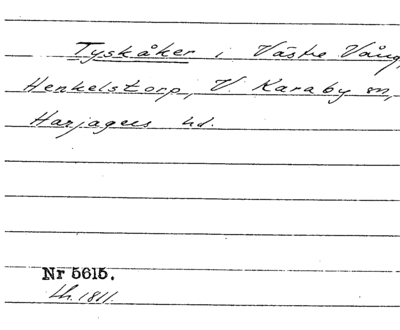 Tyskåker i Västre Vång,
Henkelstorp, V. Karaby sn,
Harjagers hd.
Nr 5615.
Lh. 1811.